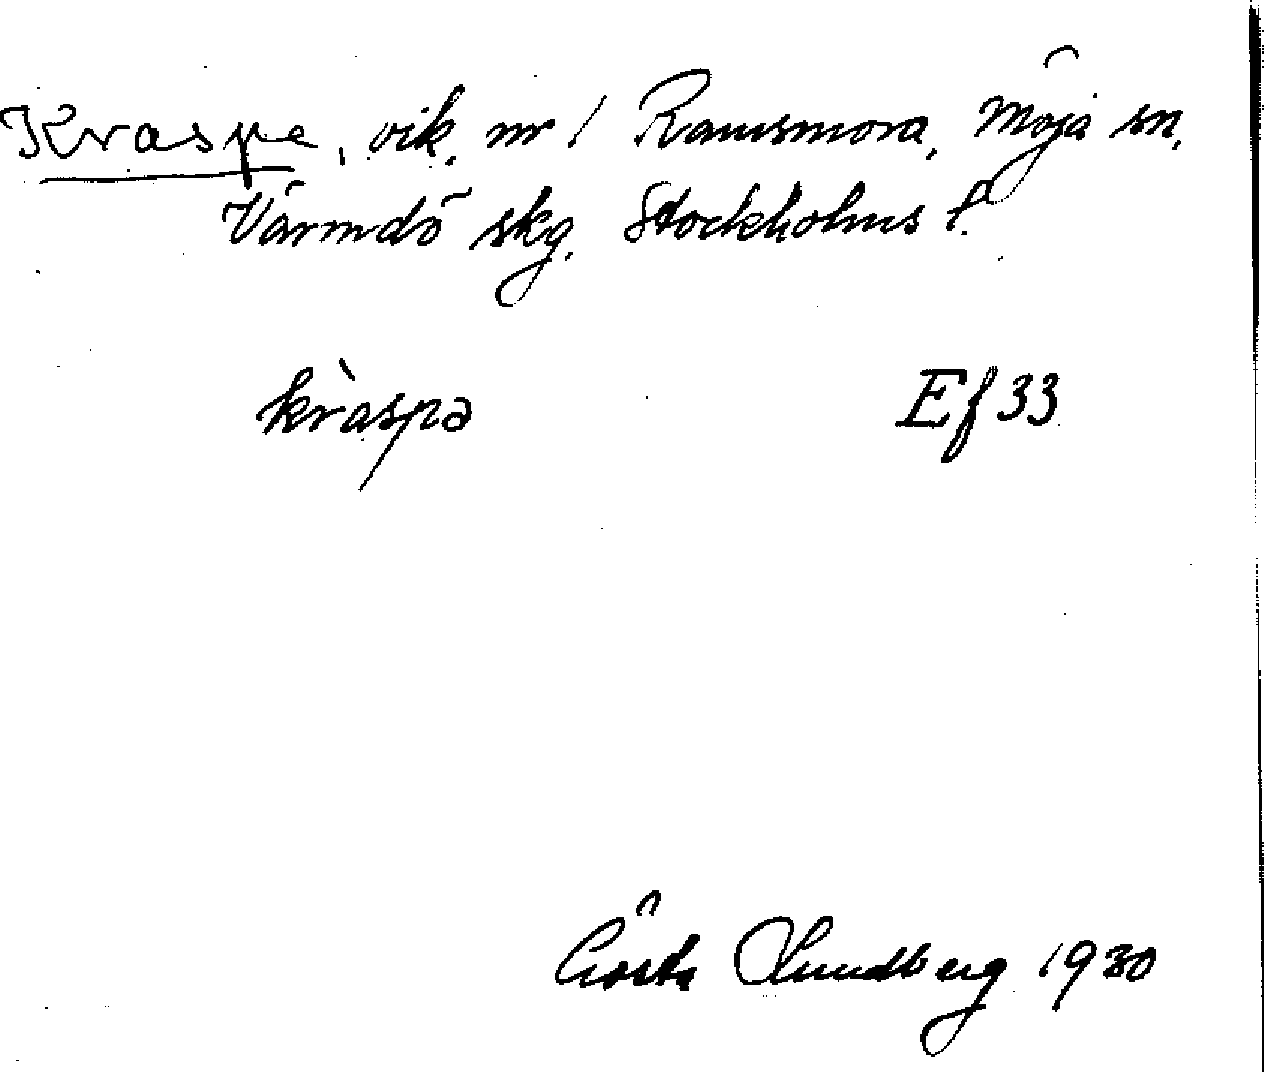 Kraspe, vik, nr 1 Ramsmora, Möja sn,
Värmdö skg, Stockholms l.
kràspə Ef 33
Gösta Lundberg 1930